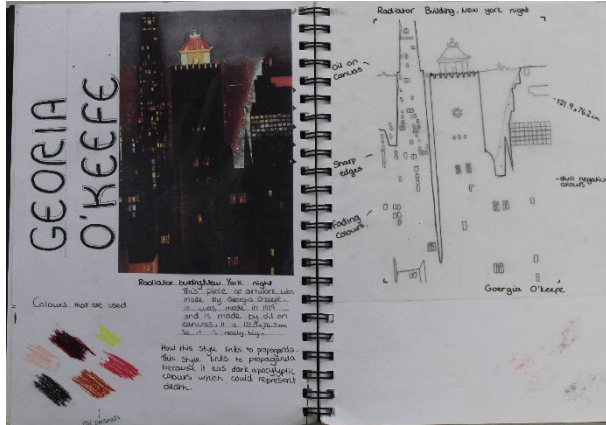 GEORIA
O'KEEFE
Radiator building New York night
This piece of artwork was
made by Georgia O'Keefe
it was made in 1929
and is made by oil on
canvas. it is 121.9x76.2cm
so it is really big.
Colours that are used
How this style links to propaganda.
This style links to propaganda
because it has dark apocalyptic
colours which could represent
death.
oil pastels
Radiator Building. New york night
oil on
canvas
121.9x76.2cm
Sharp
edges
-dull negative
colours
fading
colours.
Goergia O'Keefe